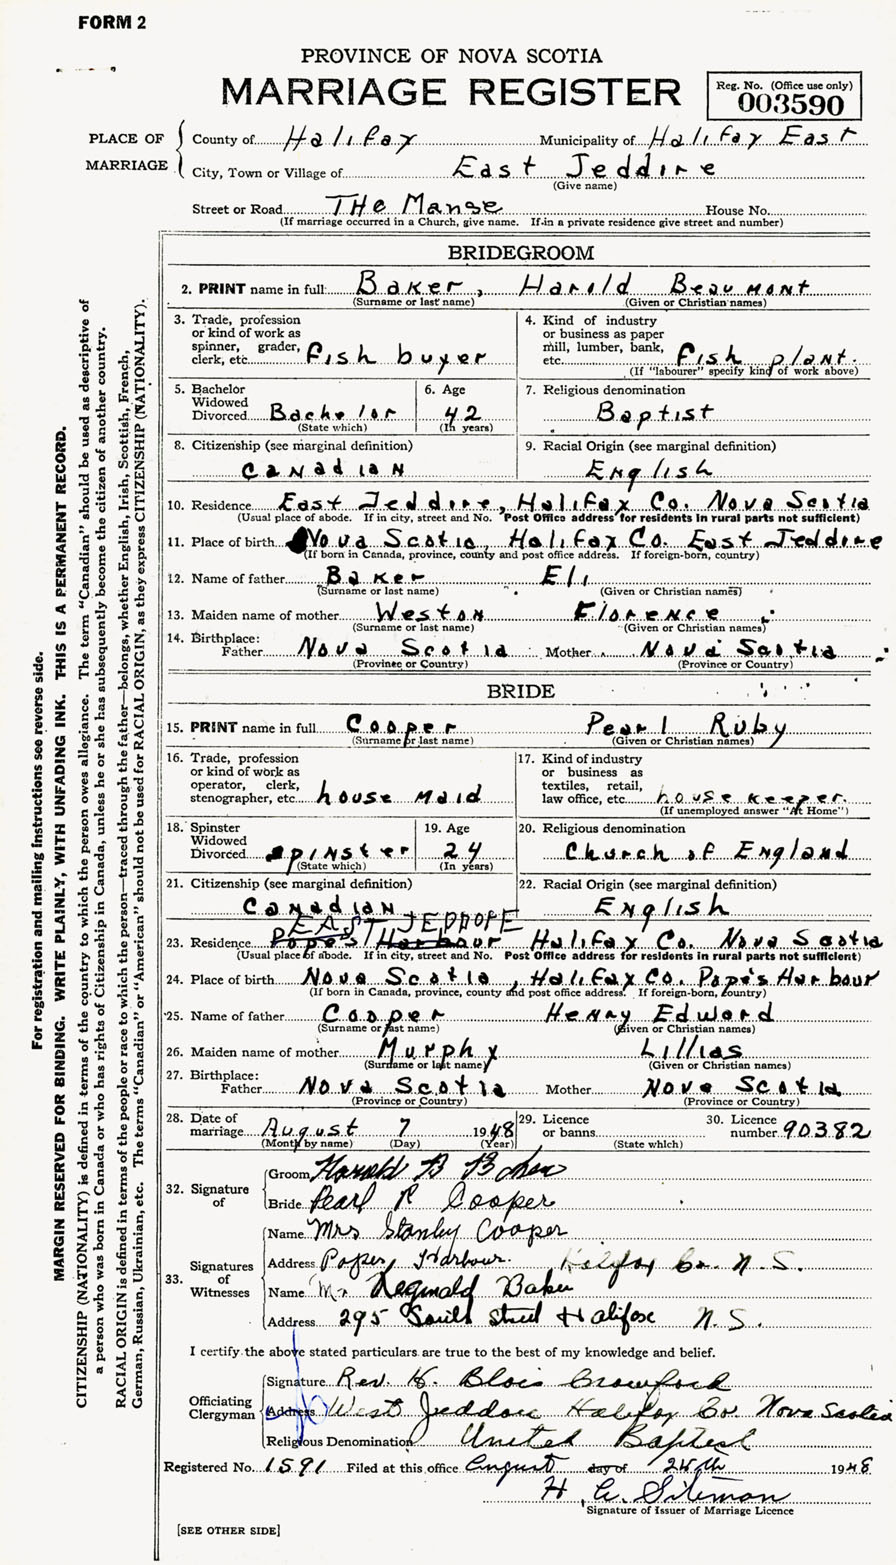 FORM 2
PROVINCE OF NOVA SCOTIA
MARRIAGE REGISTER
Reg. No. (Office use only)
003590
PLACE OF MARRIAGE
County of Halifax Municipality of Halifax East
City, Town or Village of East Jeddore
(Give name)
Street or Road THe Manse House No.
(If marriage occurred in a Church, give name. If in a private residence give street and number)
BRIDEGROOM
2. PRINT name in full Baker, Harold Beaumont
(Surname or last name) (Given or Christian names)
3. Trade, profession or kind of work as spinner, grader, clerk, etc. Fish buyer
4. Kind of industry or business as paper mill, lumber, bank, etc. Fish plant.
(If "labourer" specify kind of work above)
5. Bachelor Widowed Divorced Bachelor
(State which)
6. Age 42
(In years)
7. Religious denomination
Baptist
8. Citizenship (see marginal definition)
Canadian
9. Racial Origin (see marginal definition)
English
10. Residence East Jeddore, Halifax Co. Nova Scotia
(Usual place of abode. If in city, street and No. Post Office address for residents in rural parts not sufficient)
11. Place of birth Nova Scotia, Halifax Co. East Jeddore
(If born in Canada, province, county and post office address. If foreign-born, country)
12. Name of father Baker Eli
(Surname or last name) (Given or Christian names)
13. Maiden name of mother Weston Florence
(Surname or last name) (Given or Christian names)
14. Birthplace:
Father Nova Scotia Mother Nova Scotia
(Province or Country) (Province or Country)
BRIDE
15. PRINT name in full Cooper Pearl Ruby
(Surname or last name) (Given or Christian names)
16. Trade, profession or kind of work as operator, clerk, stenographer, etc. house maid
17. Kind of industry or business as textiles, retail, law office, etc. house keeper.
(If unemployed answer "At Home")
18. Spinster Widowed Divorced spinster
(State which)
19. Age 24
(In years)
20. Religious denomination
Church of England
21. Citizenship (see marginal definition)
Canadian
22. Racial Origin (see marginal definition)
English
EAST JEDDORE
23. Residence Pope's Harbour Halifax Co. Nova Scotia
(Usual place of abode. If in city, street and No. Post Office address for residents in rural parts not sufficient)
24. Place of birth Nova Scotia, Halifax Co. Pope's Harbour
(If born in Canada, province, county and post office address. If foreign-born, country)
25. Name of father Cooper Henry Edward
(Surname or last name) (Given or Christian names)
26. Maiden name of mother Murphy Lillias
(Surname or last name) (Given or Christian names)
27. Birthplace:
Father Nova Scotia Mother Nova Scotia
(Province or Country) (Province or Country)
28. Date of marriage August 7 1948
(Month by name) (Day) (Year)
29. Licence or banns
(State which)
30. Licence number 90382
32. Signature of
Groom Harold B Baker
Bride Pearl R Cooper
33. Signatures of Witnesses
Name Mrs Stanley Cooper
Address Popes Harbour. Halifax Co. N.S.
Name Mr Reginald Baker
Address 295 South Street Halifax N.S.
I certify the above stated particulars are true to the best of my knowledge and belief.
Officiating Clergyman
Signature Rev. H. Blois Crawford
Address West Jeddore Halifax Co. Nova Scotia
Religious Denomination United Baptist
Registered No. 1591 Filed at this office August day of 24th 1948
H. G. Siteman
Signature of Issuer of Marriage Licence
[SEE OTHER SIDE]
For registration and mailing instructions see reverse side.
MARGIN RESERVED FOR BINDING. WRITE PLAINLY, WITH UNFADING INK. THIS IS A PERMANENT RECORD.
CITIZENSHIP (NATIONALITY) is defined in terms of the country to which the person owes allegiance. The term "Canadian" should be used as descriptive of
a person who was born in Canada or who has rights of Citizenship in Canada, unless he or she has subsequently become the citizen of another country.
RACIAL ORIGIN is defined in terms of the people or race to which the person—traced through the father—belongs, whether English, Irish, Scottish, French,
German, Russian, Ukrainian, etc. The terms "Canadian" or "American" should not be used for RACIAL ORIGIN, as they express CITIZENSHIP (NATIONALITY).